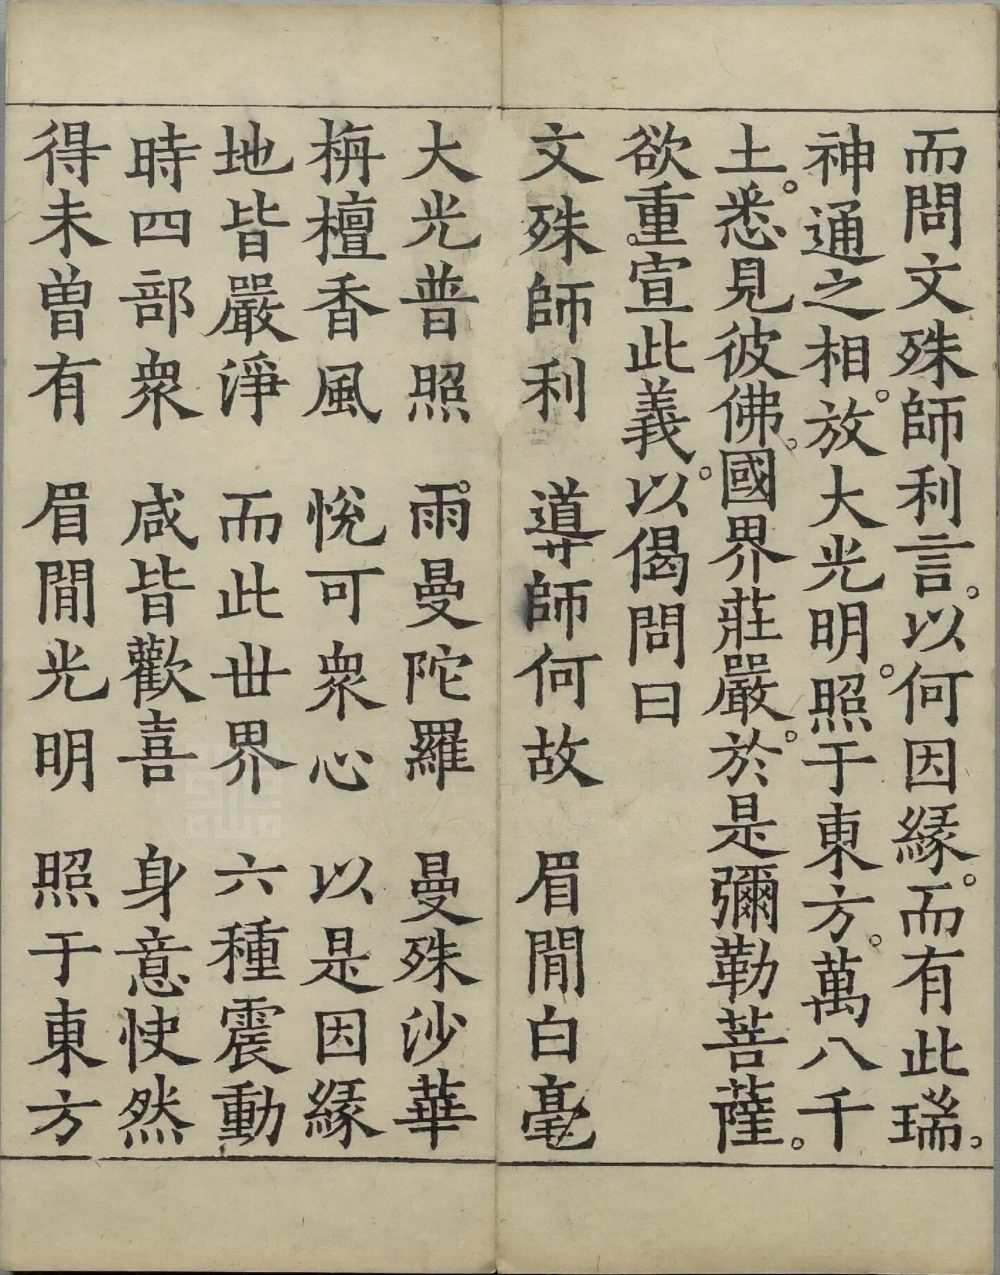 而問文殊師利言。以何因緣。而有此瑞。
神通之相。放大光明。照于東方。萬八千
土。悉見彼佛。國界莊嚴。於是彌勒菩薩。
欲重。宣此義。以偈問曰
文殊師利　導師何故　眉閒白毫
大光普照　雨曼陀羅　曼殊沙華
栴檀香風　悅可眾心　以是因緣
地皆嚴淨　而此世界　六種震動
時四部眾　咸皆歡喜　身意快然
得未曾有　眉閒光明　照于東方